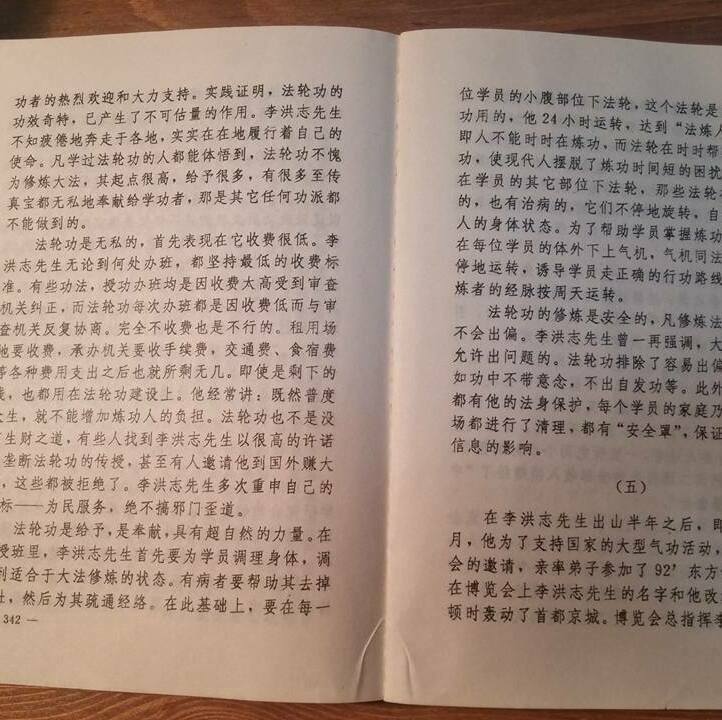 功者的热烈欢迎和大力支持。实践证明，法轮功的
功效奇特，已产生了不可估量的作用。李洪志先生
不知疲倦地奔走于各地，实实在在地履行着自己的
使命。凡学过法轮功的人都能体悟到，法轮功不愧
为修炼大法，其起点很高，给予很多，有很多至传
真宝都无私地奉献给学功者，那是其它任何功派都
不能做到的。
法轮功是无私的，首先表现在它收费很低。李
洪志先生无论到何处办班，都坚持最低的收费标
准。有些功法，授功办班均是因收费太高受到审查
机关纠正，而法轮功每次办班都是因收费低而与审
查机关反复协商。完全不收费也是不行的。租用场
地要收费，承办机关要收手续费，交通费、食宿费
等各种费用支出之后也就所剩无几。即使是剩下的
钱，也都用在法轮功建设上。他经常讲：既然普度
众生，就不能增加炼功人的负担。法轮功也不是没
有生财之道，有些人找到李洪志先生以很高的许诺
垄断法轮功的传授，甚至有人邀请他到国外赚大
，这些都被拒绝了。李洪志先生多次重申自己的
标——为民服务，绝不搞邪门歪道。
法轮功是给予，是奉献，具有超自然的力量。在
授班里，李洪志先生首先要为学员调理身体，调
到适合于大法修炼的状态。有病者要帮助其去掉
灶，然后为其疏通经络。在此基础上，要在每一
342 —
位学员的小腹部位下法轮，这个法轮是
功用的，他24小时运转，达到“法炼人
即人不能时时在炼功，而法轮在时时帮
功，使现代人摆脱了炼功时间短的困扰
在学员的其它部位下法轮，那些法轮
的，也有治病的，它们不停地旋转，自
人的身体状态。为了帮助学员掌握炼功
在每位学员的体外下上气机，气机同法
停地运转，诱导学员走正确的行功路线
炼者的经脉按周天运转。
法轮功的修炼是安全的，凡修炼法
不会出偏。李洪志先生曾一再强调，大
允许出问题的。法轮功排除了容易出偏
如功中不带意念，不出自发功等。此外
都有他的法身保护，每个学员的家庭乃
场都进行了清理，都有“安全罩”，保证
信息的影响。
（五）
在李洪志先生出山半年之后，即
月，他为了支持国家的大型气功活动，
会的邀请，亲率弟子参加了92’东方
在博览会上李洪志先生的名字和他改
顿时轰动了首都京城。博览会总指挥李